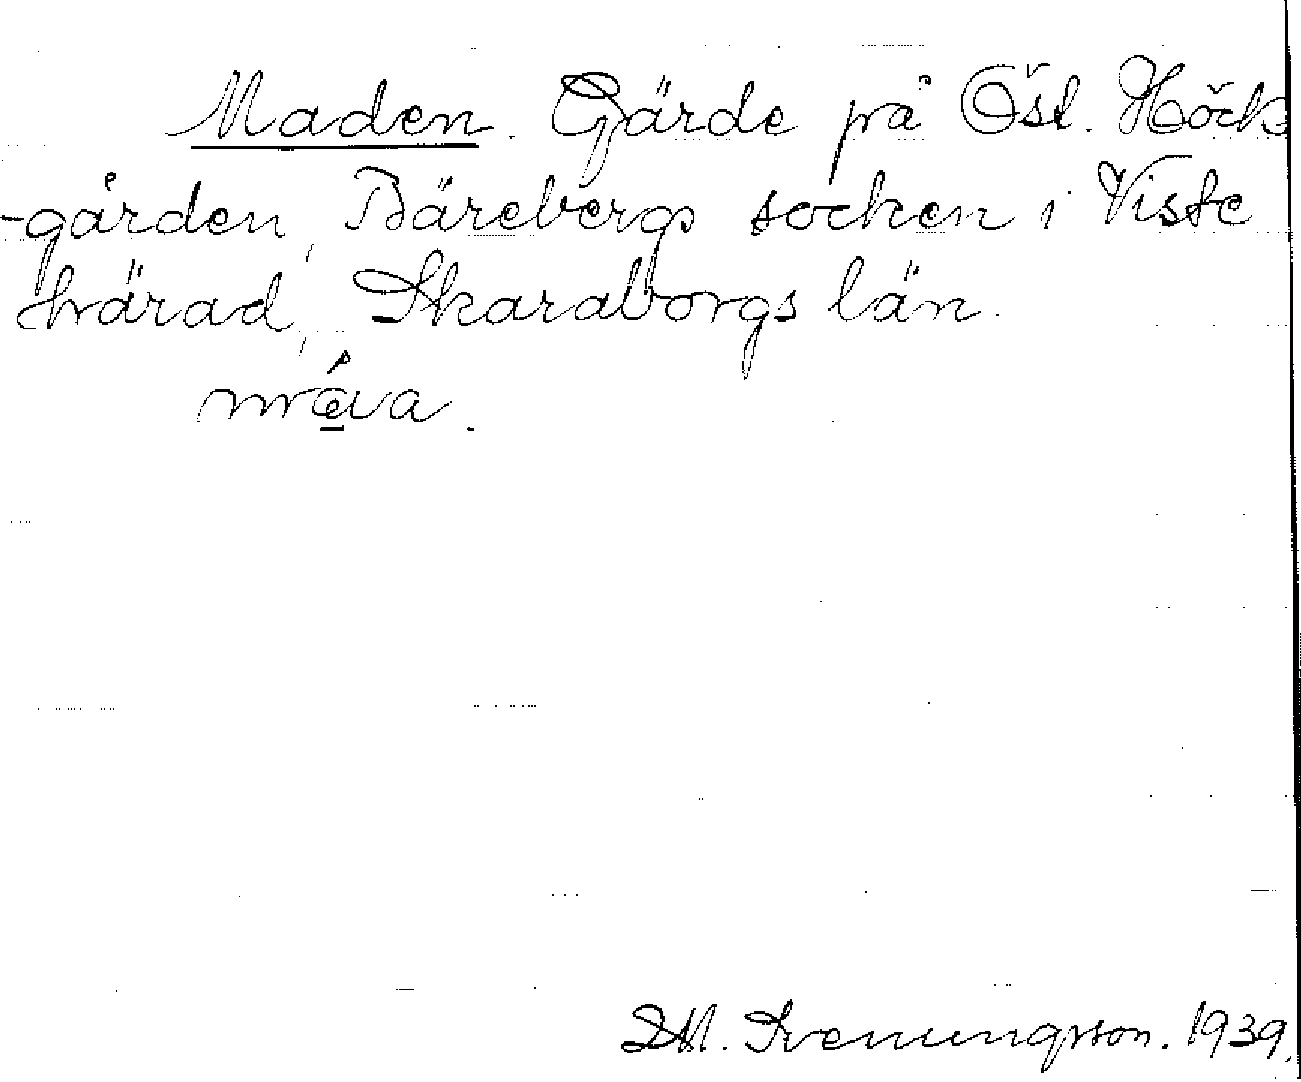 Maden. Gärde på Östl. Höck
-gården, Bärebergs socken i Viste
härad, Skaraborgs län.
Svenungsson. 1939.